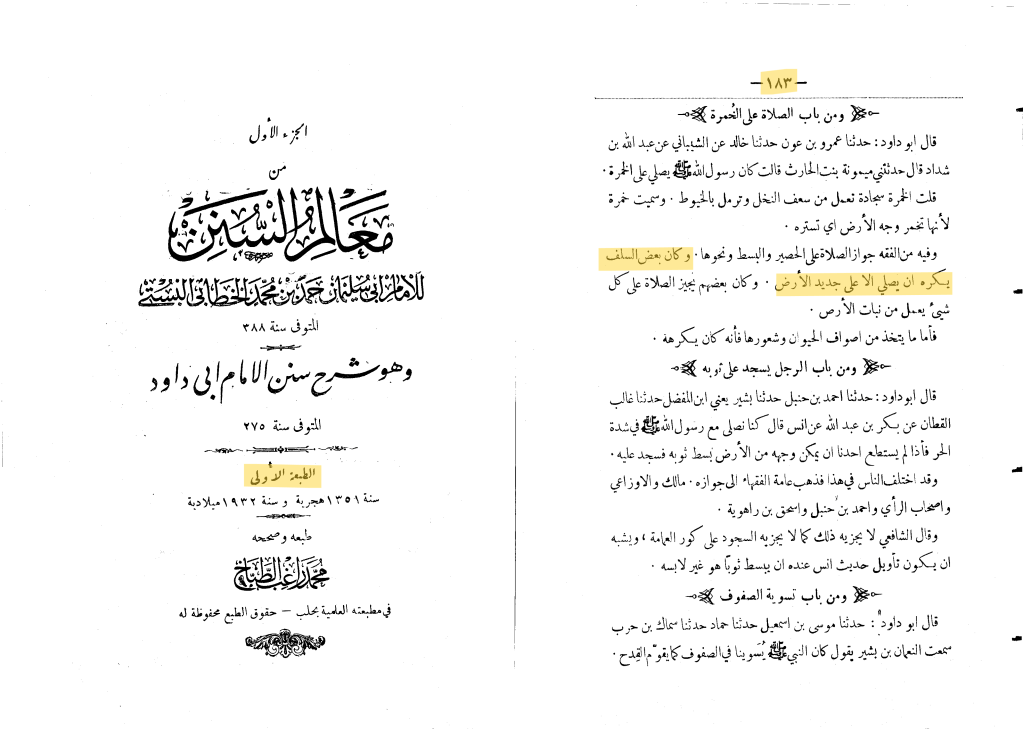 الجزء الأول
من
معالم السنن
للإمام أبي سليمان حمد بن محمد الخطابي البستي
المتوفى سنة ٣٨٨
وهو شرح سنن الامام ابي داود
المتوفى سنة ٢٧٥
الطبعة الأولى
سنة ١٣٥١ هجرية و سنة ١٩٣٢ ميلادية
طبعه وصححه
محمد راغب الطباخ
في مطبعته العلمية بحلب – حقوق الطبع محفوظة له
– ١٨٣ –
ومن باب الصلاة على الخُمرة
قال ابو داود: حدثنا عمرو بن عون حدثنا خالد عن الشيباني عن عبد الله بن
شداد قال حدثتني ميمونة بنت الحارث قالت كان رسول الله ﷺ يصلي على الخمرة.
قلت الخمرة سجادة تعمل من سعف النخل وترمل بالخيوط. وسميت خمرة
لأنها تخمر وجه الأرض اي تستره.
وفيه من الفقه جواز الصلاة على الحصير والبسط ونحوها. وكان بعض السلف
يكره ان يصلي الا على جديد الأرض. وكان بعضهم يجيز الصلاة على كل
شيء يعمل من نبات الأرض.
فأما ما يتخذ من اصواف الحيوان وشعورها فأنه كان يكرهه.
ومن باب الرجل يسجد على ثوبه
قال ابو داود: حدثنا احمد بن حنبل حدثنا بشير يعني ابن المفضل حدثنا غالب
القطان عن بكر بن عبد الله عن انس قال كنا نصلي مع رسول الله ﷺ في شدة
الحر فأذا لم يستطع احدنا ان يمكن وجهه من الأرض بسط ثوبه فسجد عليه.
وقد اختلف الناس في هذا فذهب عامة الفقهاء الى جوازه. مالك والاوزاعي
واصحاب الرأي واحمد بن حنبل واسحق بن راهوية.
وقال الشافعي لا يجزيه ذلك كما لا يجزيه السجود على كور العمامة، ويشبه
ان يكون تأويل حديث انس عنده ان يبسط ثوباً هو غير لابسه.
ومن باب تسوية الصفوف
قال ابو داود: حدثنا موسى بن اسمعيل حدثنا حماد حدثنا سماك بن حرب
سمعت النعمان بن بشير يقول كان النبي ﷺ يُسَوينا في الصفوف كما يقوّم القِدح.